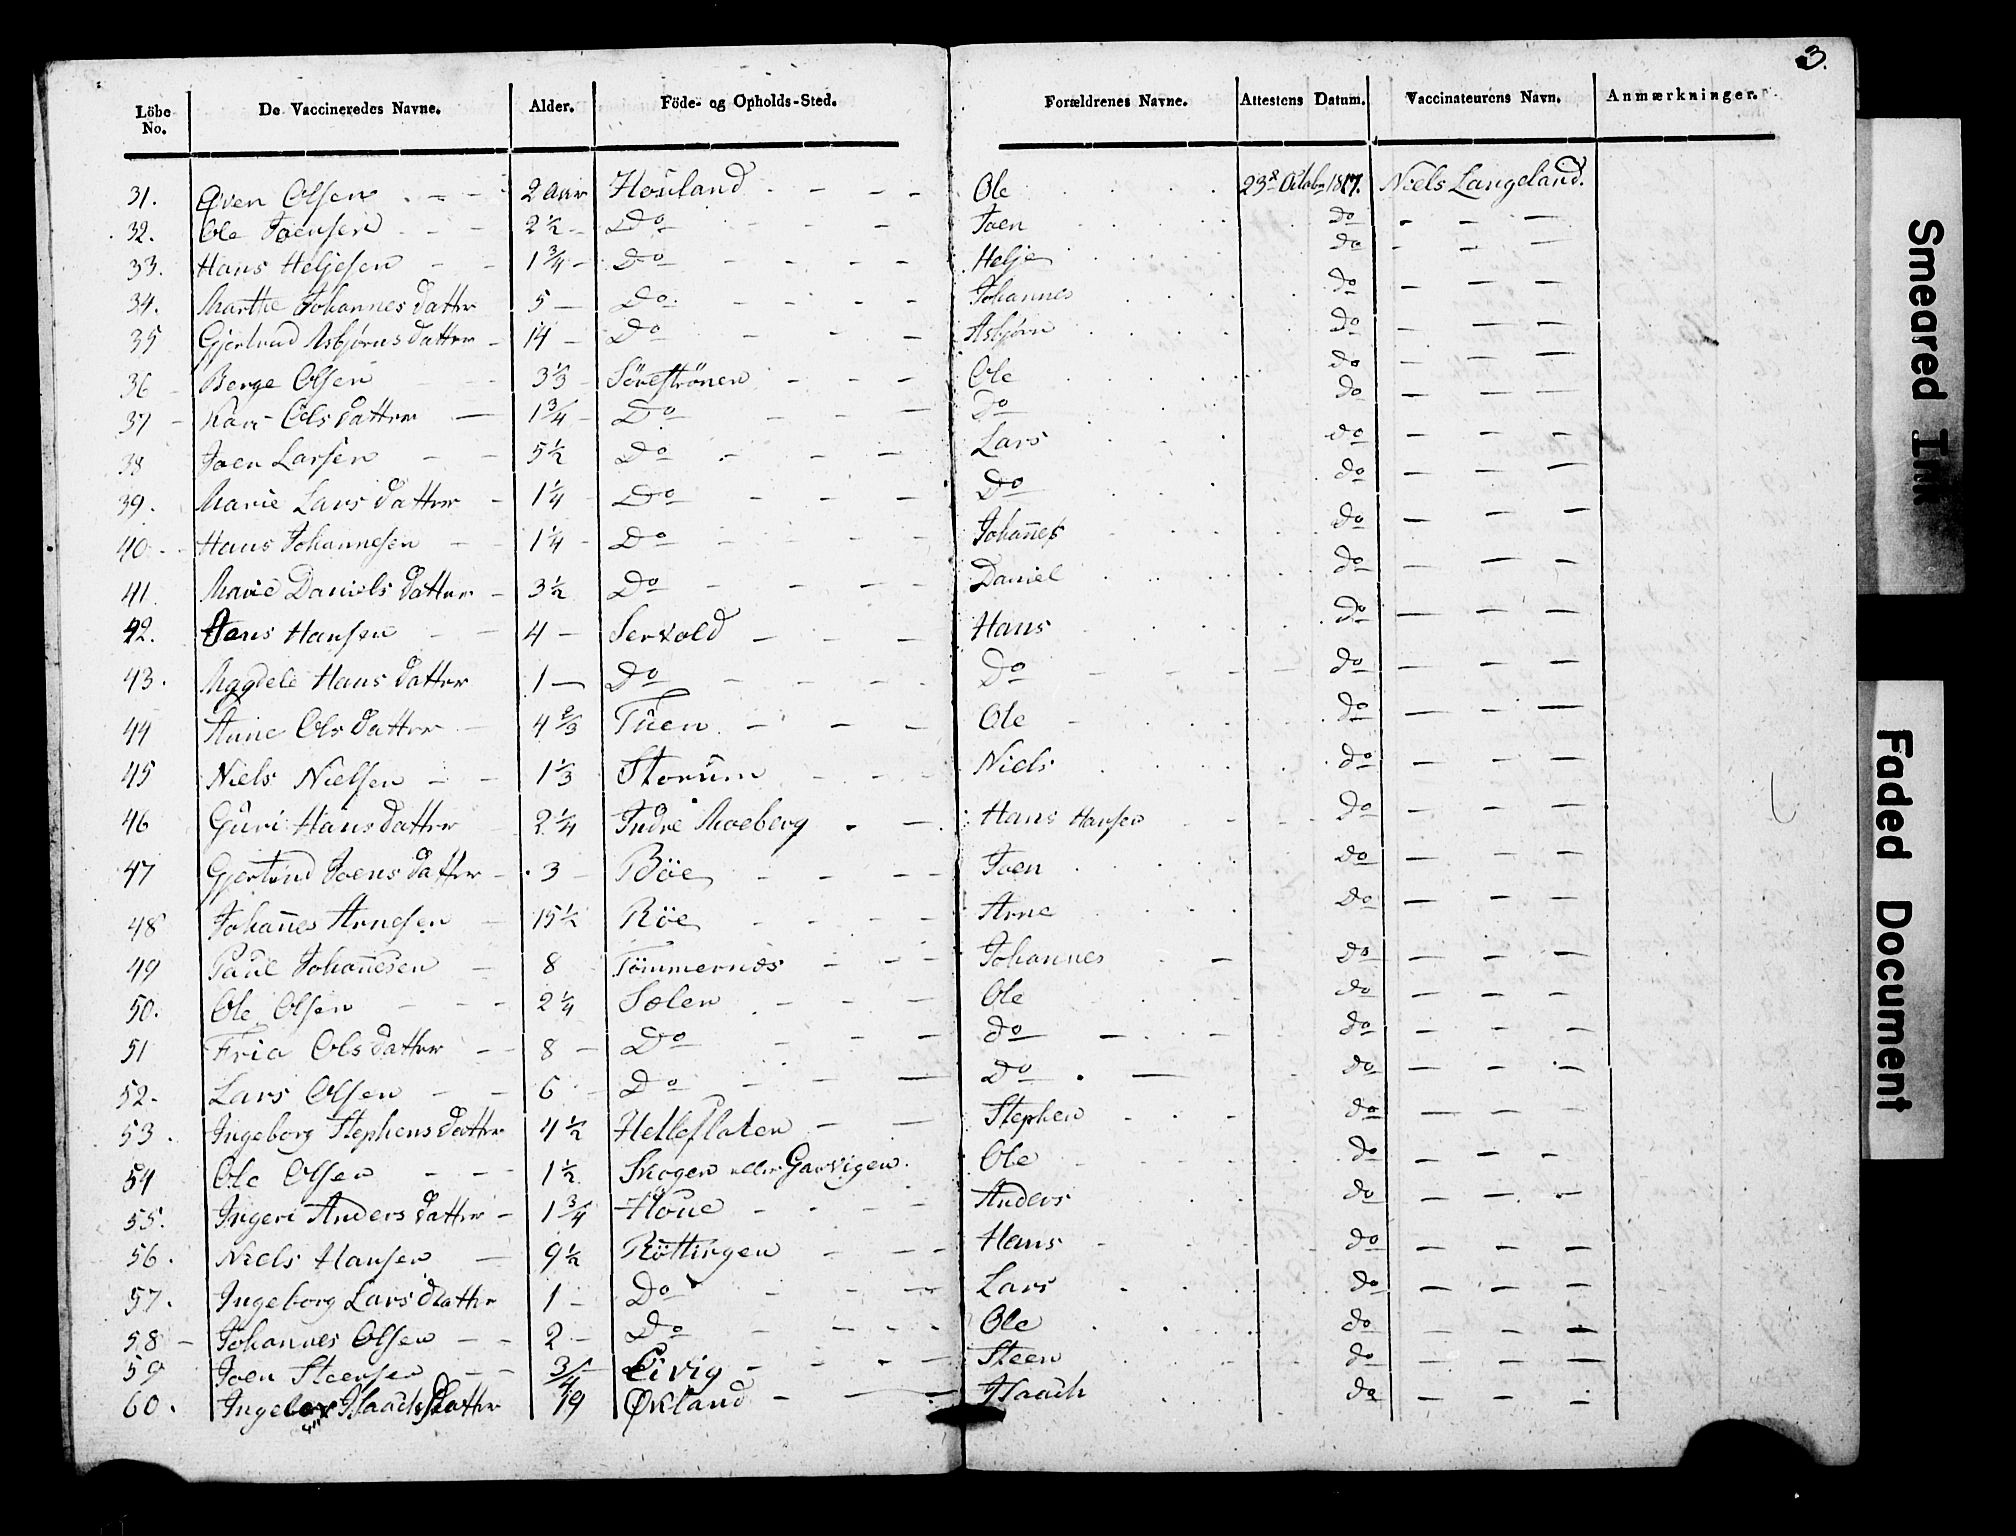 3.
Löbe No. De Vaccineredes Navne. Alder. Föde- og Opholds-Sted. Forældrenes Navne. Attestens Datum. Vaccinateurens Navn. Anmærkninger.
31. Sven Olsen - - - 2 Aar Houland - - - Ole 23de Octobr 1817. Niels Langeland.
32. Ole Joensen - - 2 1/2 - Do - Joen do - - -
33. Hans Heljesen - - 1 3/4 - Do - - - - Helje do - - -
34. Marthe Johannes datter 5 - Do - - - - Johannes do - - -
35 Gjertrud Asbjørns datter - 14 - Do - - - Asbjørn do - - -
36 - Berge Olsen - - 3 1/3 - Söreströnen - - - Ole do - - -
37 - Kari Ols datter - 1 3/4 - Do - - - Do do - - -
38 Joen Larsen - - 5 1/2 Do - - - Lars do - - -
39. Marie Lars datter - 1 1/4 - Do - - - Do do - - -
40. - Hans Johannesen - - 1 1/4 - Do - - - - Johannes do - - -
41. Marie Daniels datter - 3 1/2 Do - - - - Daniel do - - -
42. Jens Hansen - - 4 - Servold - - - Hans do - - -
43. Magdele Hans datter 1 - Do - - - - Do do - - -
44 Anne Ols datter - 4 2/3 Tuen - - - Ole do - - -
45 Niels Nielsen - - 1 1/3 Storum - - - Niels do - - -
46 Guri Hans datter - 2 1/4 Indre Moeberg - - Hans Hansen do - - -
47 Gjertrud Joens datter - 3 - Böe - - - - Joen do - - -
48 Johannes Arnesen - 15 1/2 Röe - - - - Arne do - - -
49 Paul Johannesen - 8 Tömmernæs - - - Johannes - - do - - -
50. Ole Olsen - - - 2 1/4 Sælen - - - Ole do - - -
51 Fria Ols datter - - 8 - Do - - - do - - do - - -
52. Lars Olsen - - 6 - Do - - - Do - do - - -
53. Ingeborg Stephens datter 4 1/2 Helleflaten - - Stephen - - - do - - -
54 Ole Olsen - - - 1 1/2 Skogen eller Garvigen. Ole do - - -
55. Ingeri Anders datter - 1 3/4 Houe - - - - Anders do - - -
56. Niels Hansen - 9 1/2 Röttingen - - - Hans do - - -
57. Ingeborg Lars datter 1 - Do - - - Lars do - - -
58 - Johannes Olsen - - 2 - Do - - - - Ole do - - -
59 Joen Steensen - - 3/4 - Eivig - - - - Steen do - - -
60. Isaachs datter 19 Økland - - - Isaach do - - -
Smeared Ink
Faded Document